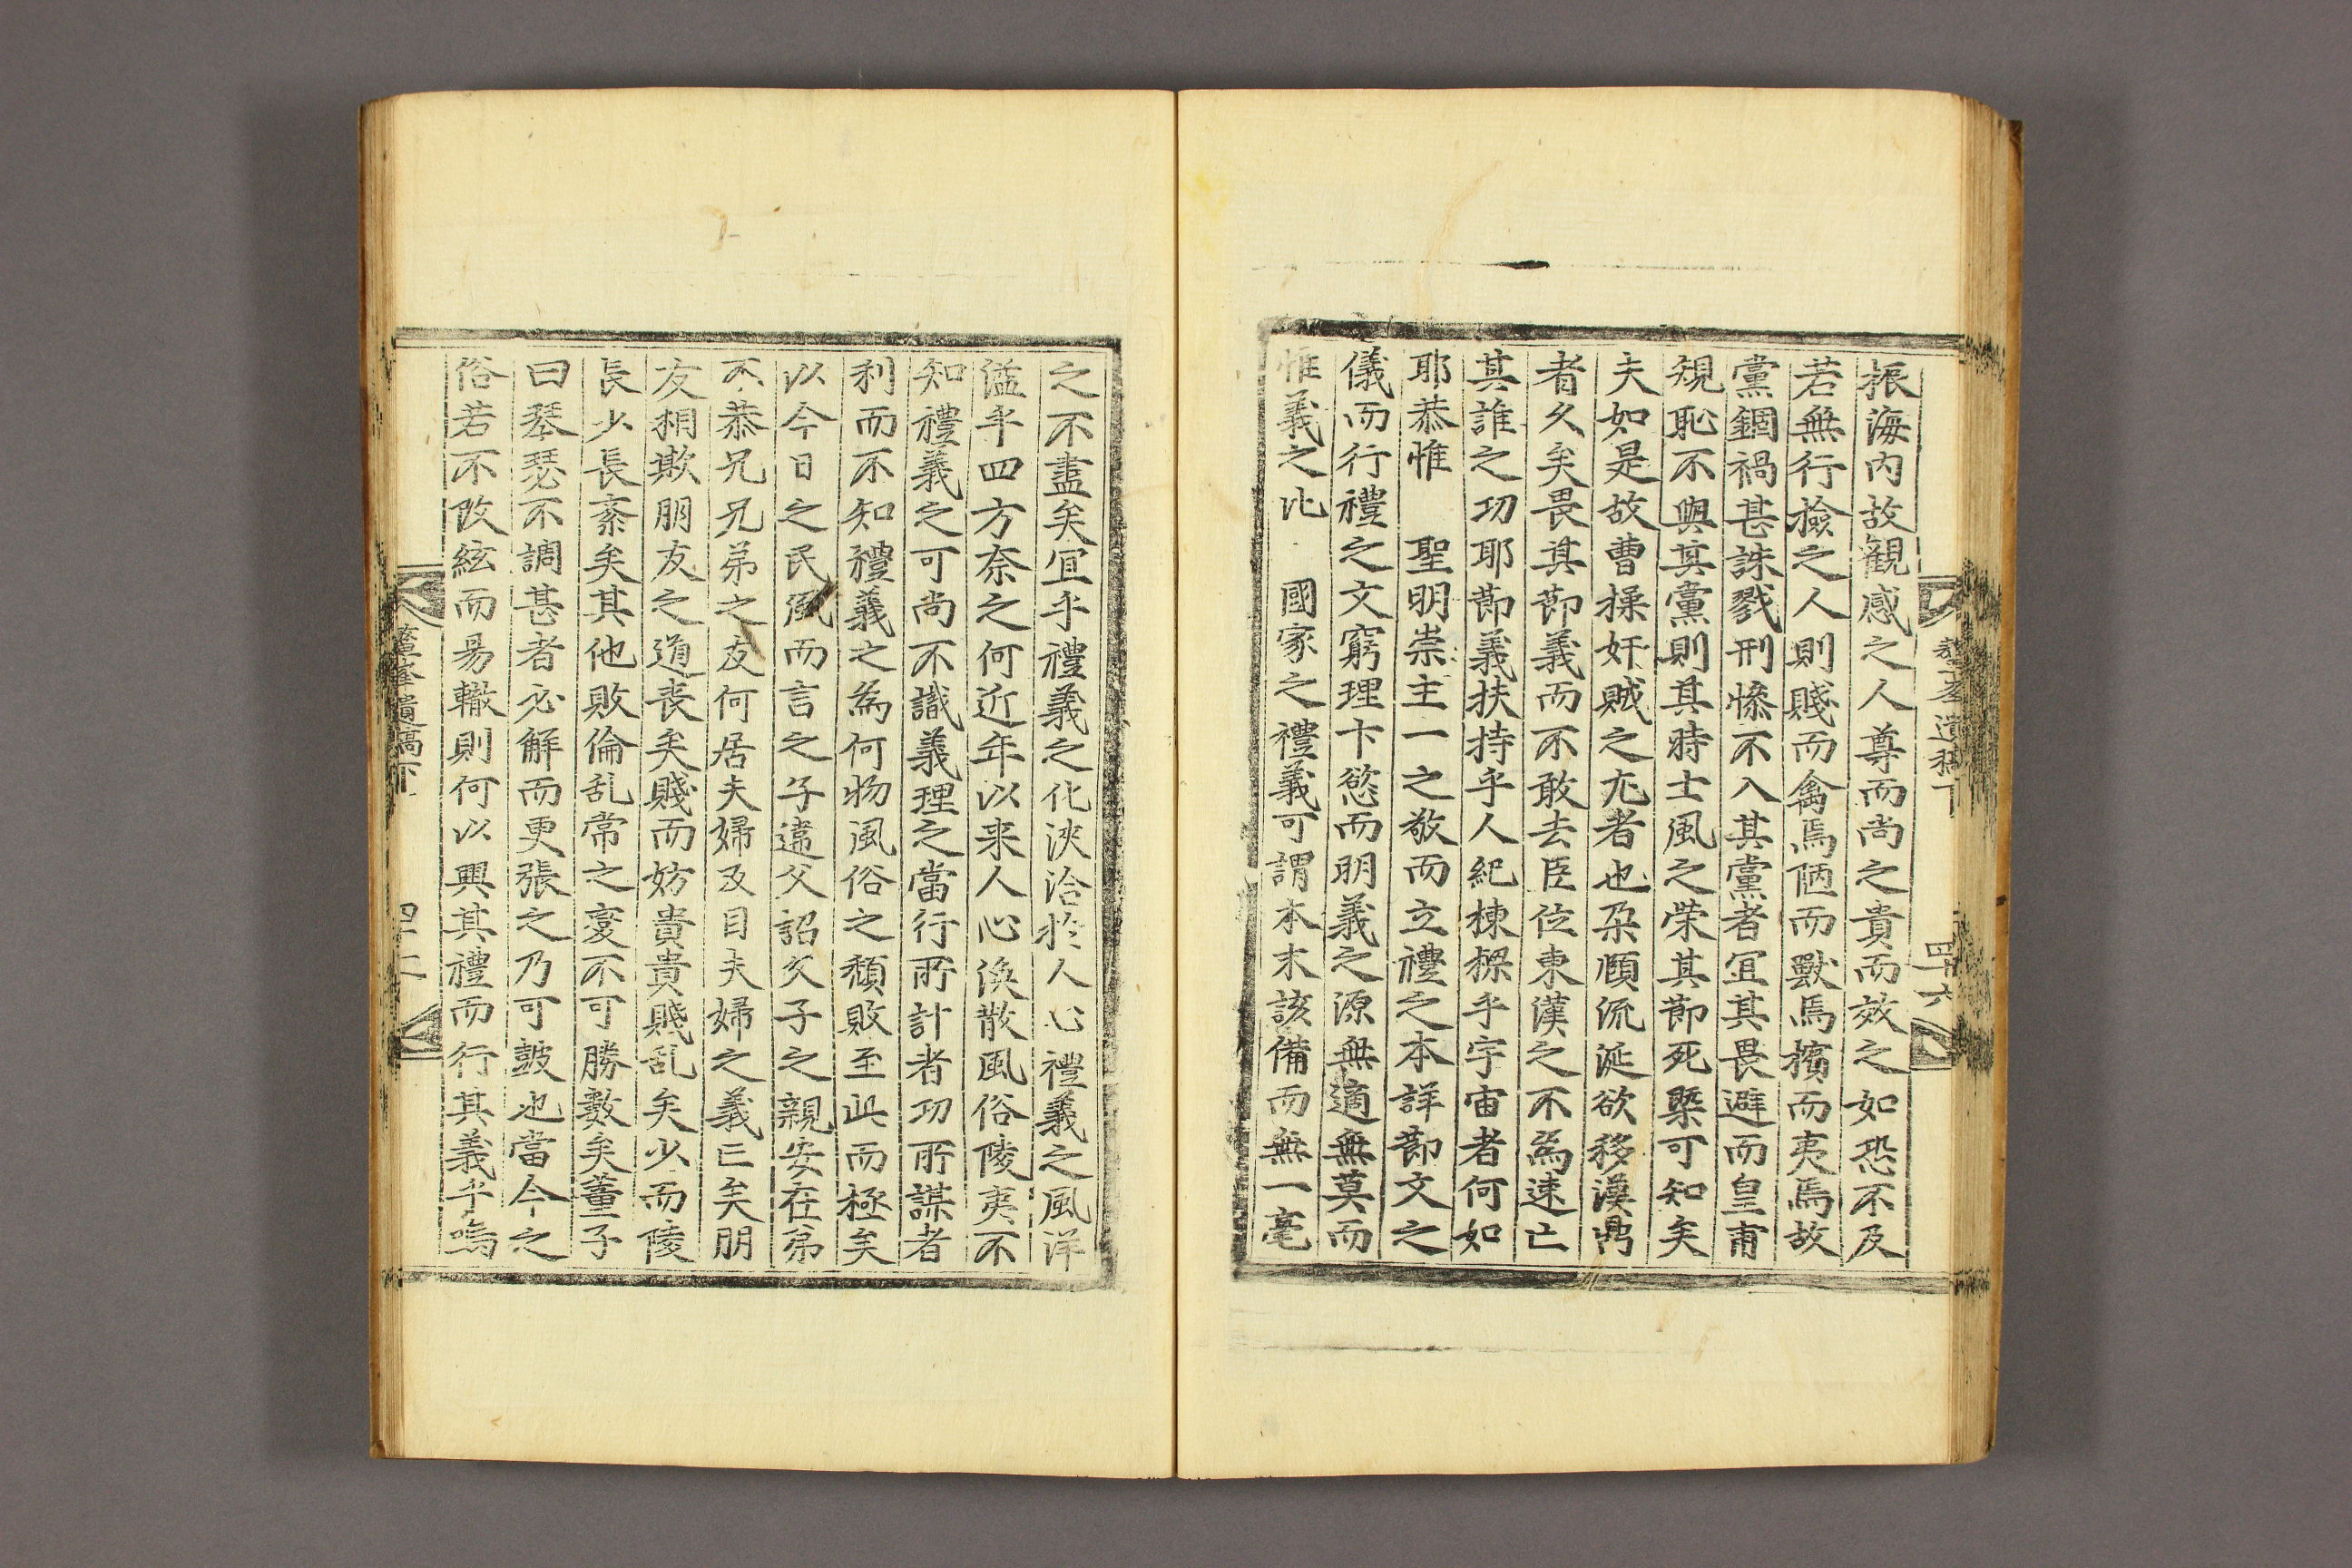 振海內故觀感之人尊而尚之貴而效之如恐不及
若無行檢之人則賤而禽焉陋而獸焉擯而夷焉故
黨錮禍甚誅戮刑慘不入其黨者冝其畏避而皇甫
規恥不與其黨則其時士風之榮其節死槩可知矣
夫如是故曹操奸賊之尤者也朶頤流涎欲移漢鼎
者久矣畏其節義而不敢去臣位東漢之不爲速亡
其誰之功耶節義扶持乎人紀棟樑乎宇宙者何如
耶恭惟　聖明崇主一之敬而立禮之本詳節文之
儀而行禮之文窮理卞慾而明義之源無適無莫而
惟義之比　國家之禮義可謂本末該備而無一毫
遺稿下
四十六
之不盡矣冝乎禮義之化浹洽於人心禮義之風洋
溢乎四方奈之何近年以来人心渙散風俗陵夷不
知禮義之可尚不識義理之當行所計者功所謀者
利而不知禮義之爲何物風俗之頹敗至此而極矣
以今日之民風而言之子違父詔父子之親安在弟
不恭兄兄弟之友何居夫婦反目夫婦之義已矣朋
友相欺朋友之道丧矣賤而妨貴貴賤乱矣少而陵
長少長紊矣其他敗倫乱常之變不可勝數矣董子
曰琴瑟不調甚者必解而更張之乃可鼓也當今之
俗若不改絃而易轍則何以興其禮而行其義乎嗚
遺稿下